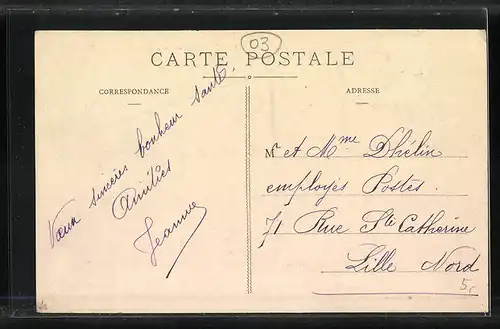 03
CARTE POSTALE
CORRESPONDANCE
ADRESSE
Vœux sincères bonheur santé.
Amitiés
Jeanne
Mr et Mme Dhélin
employés Postes.
71 Rue Ste Catherine
Lille Nord
5,